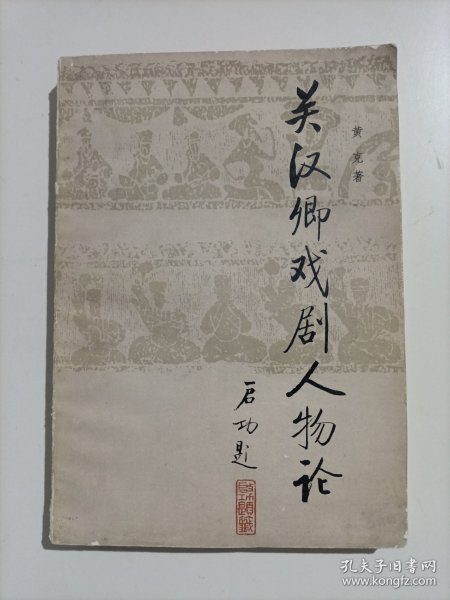 关汉卿戏剧人物论
黄克著
启功题
孔夫子旧书网
www.kongfz.com